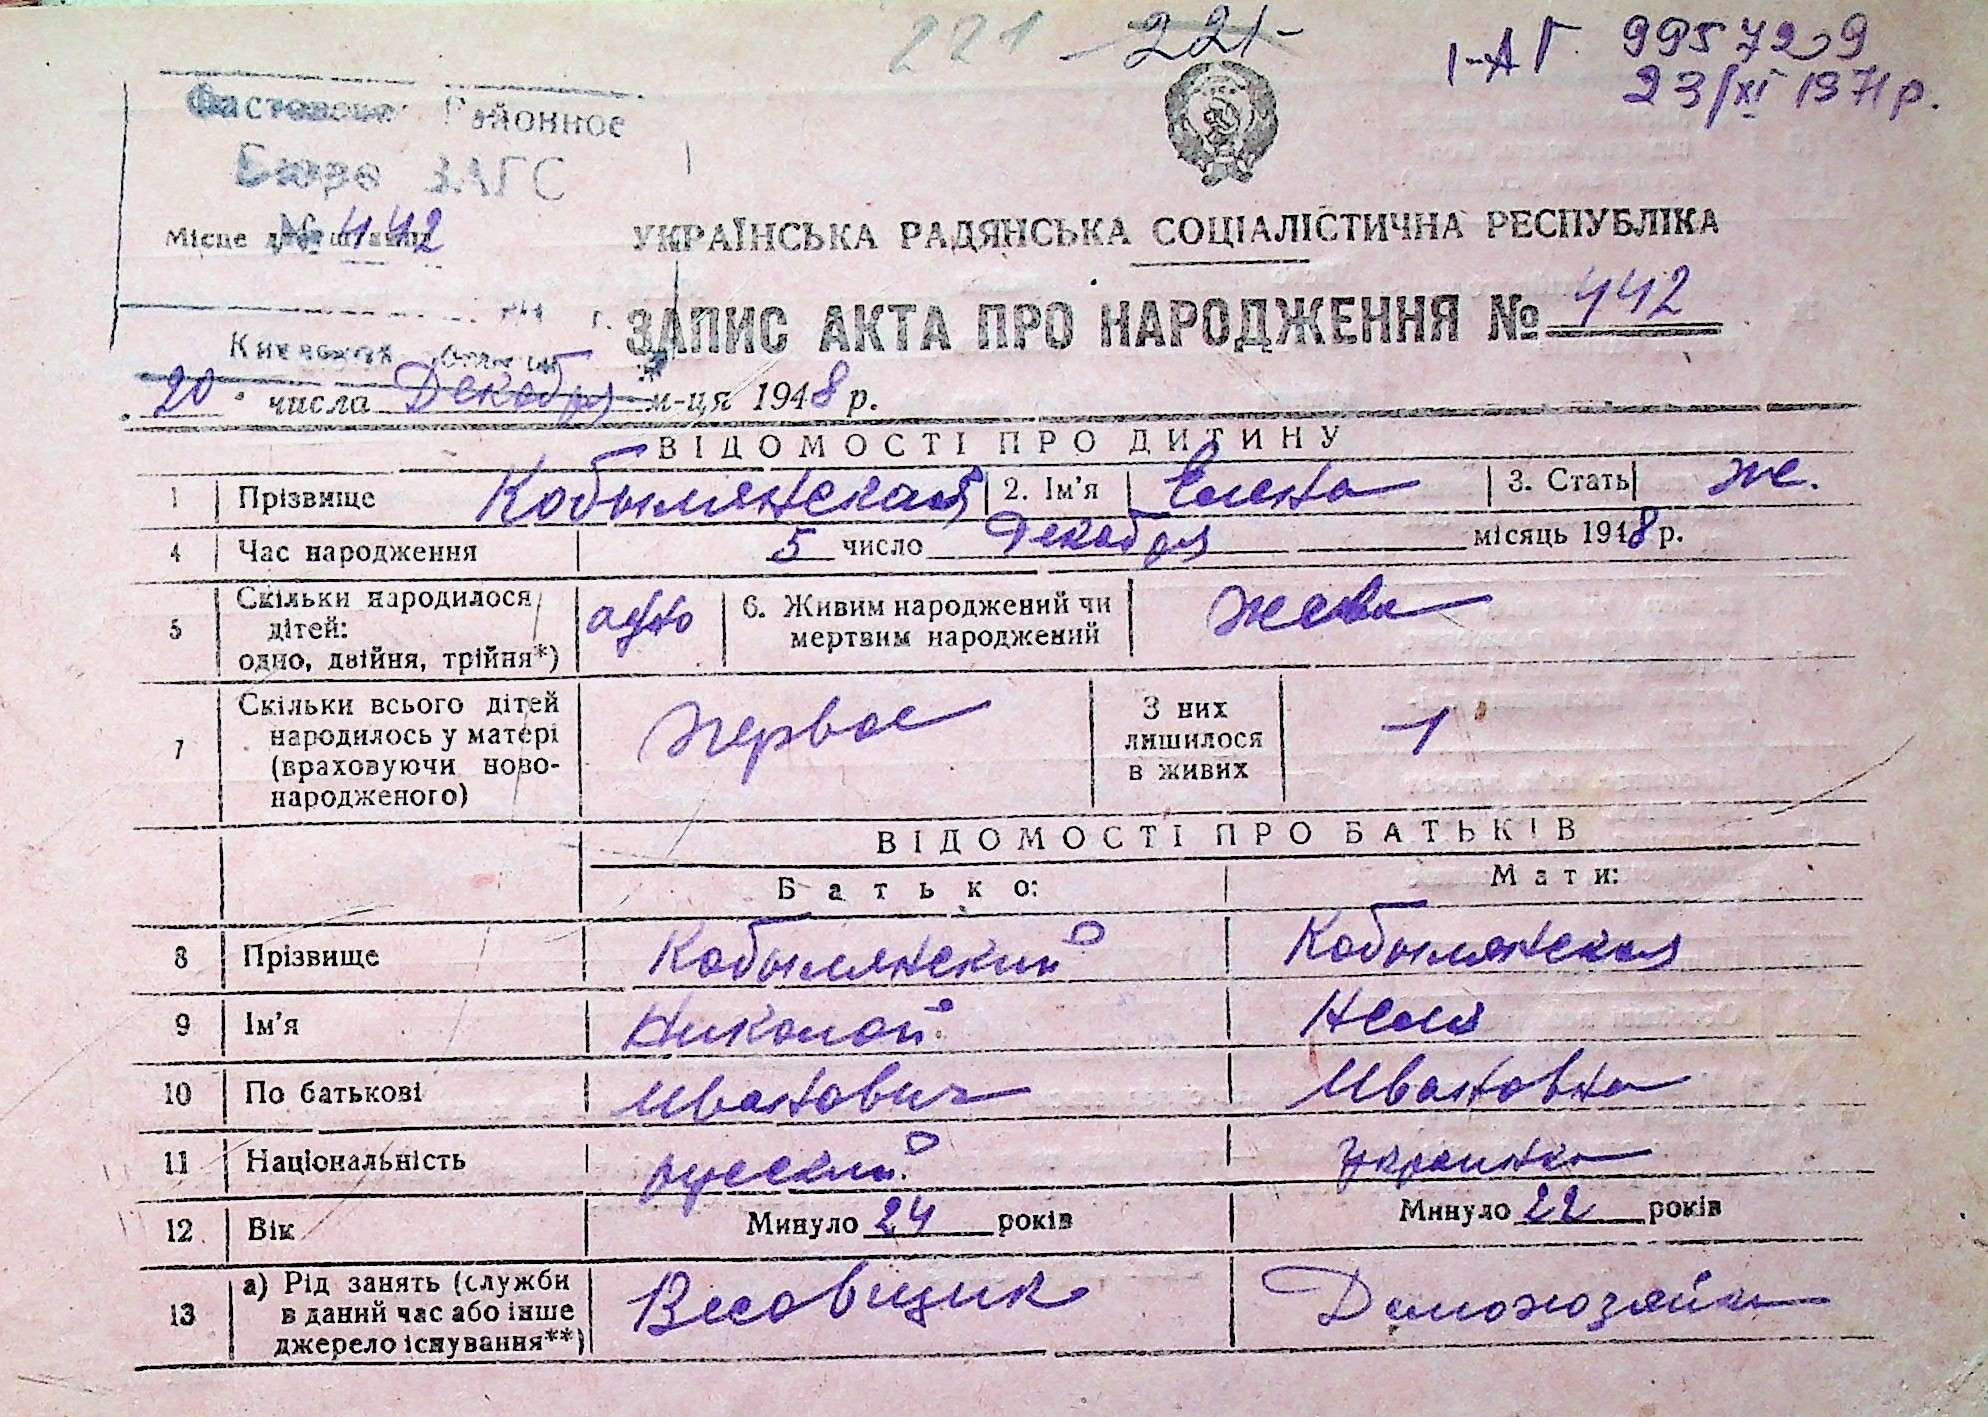 221 -221-
І-АГ. 9957229
23/XI 1971 р.
Районное
Бюро ЗАГС
№ 442
Місце
УКРАЇНСЬКА РАДЯНСЬКА СОЦІАЛІСТИЧНА РЕСПУБЛІКА
ЗАПИС АКТА ПРО НАРОДЖЕННЯ № 442
Киевская
20 числа Декабря м-ця 1948 р.
ВІДОМОСТІ ПРО ДИТИНУ
1 Прізвище Кобылянская 2. Ім'я Елена 3. Стать же.
4 Час народження 5 число Декабря місяць 1948 р.
5 Скільки народилося дітей: одно, двійня, трійня*) одно 6. Живим народжений чи мертвим народжений жива
7 Скільки всього дітей народилось у матері (враховуючи новонародженого) первое З них лишилося в живих 1
ВІДОМОСТІ ПРО БАТЬКІВ
Батько: Мати:
8 Прізвище Кобылянский Кобылянская
9 Ім'я Николай Неля
10 По батькові Иванович Ивановна
11 Національність русский украинка
12 Вік Минуло 24 років Минуло 22 років
13 а) Рід занять (служби в даний час або інше джерело існування**) Весовщик Домохозяйка